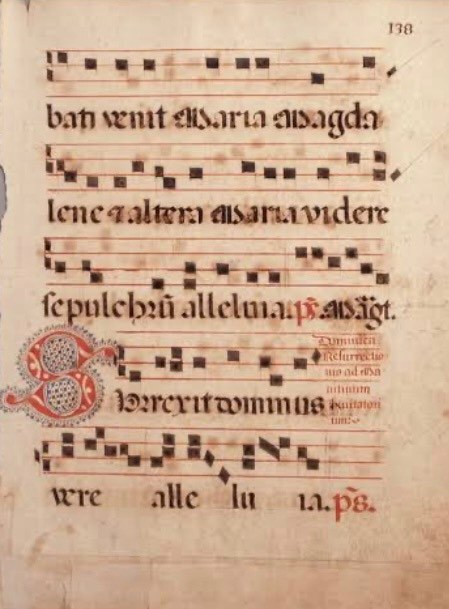 138
bati venit Maria Magda
lene ⁊ altera Maria videre
sepulchrū alleluia. p̄s. Mag̃t.
Dominica
Resurrectio
nis ad Ma
tutinum
Inuitatori
um
Surrexit dominus
vere alle lu ia. p̄s.